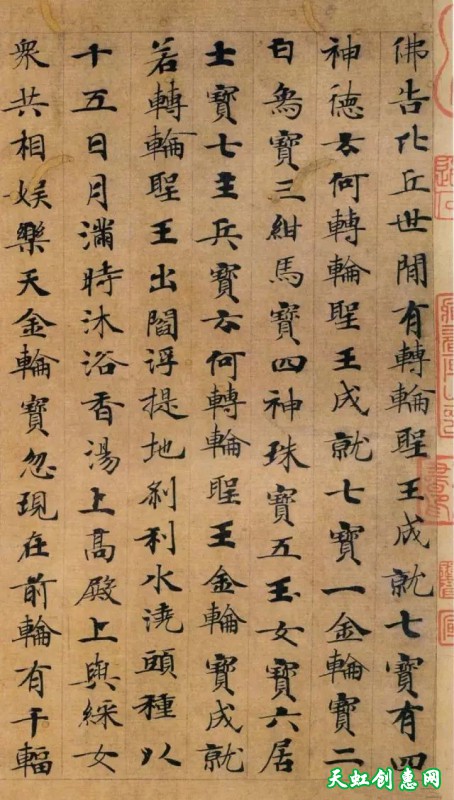 佛告比丘世間有轉輪聖王成就七寶有四
神德云何轉輪聖王成就七寶一金輪寶二
白象寶三紺馬寶四神珠寶五玉女寶六居
士寶七主兵寶云何轉輪聖王金輪寶成就
若轉輪聖王出閻浮提地剎利水澆頭種以
十五日月滿時沐浴香湯上高殿上與婇女
眾共相娛樂天金輪寶忽現在前輪有千輻
天虹创惠网